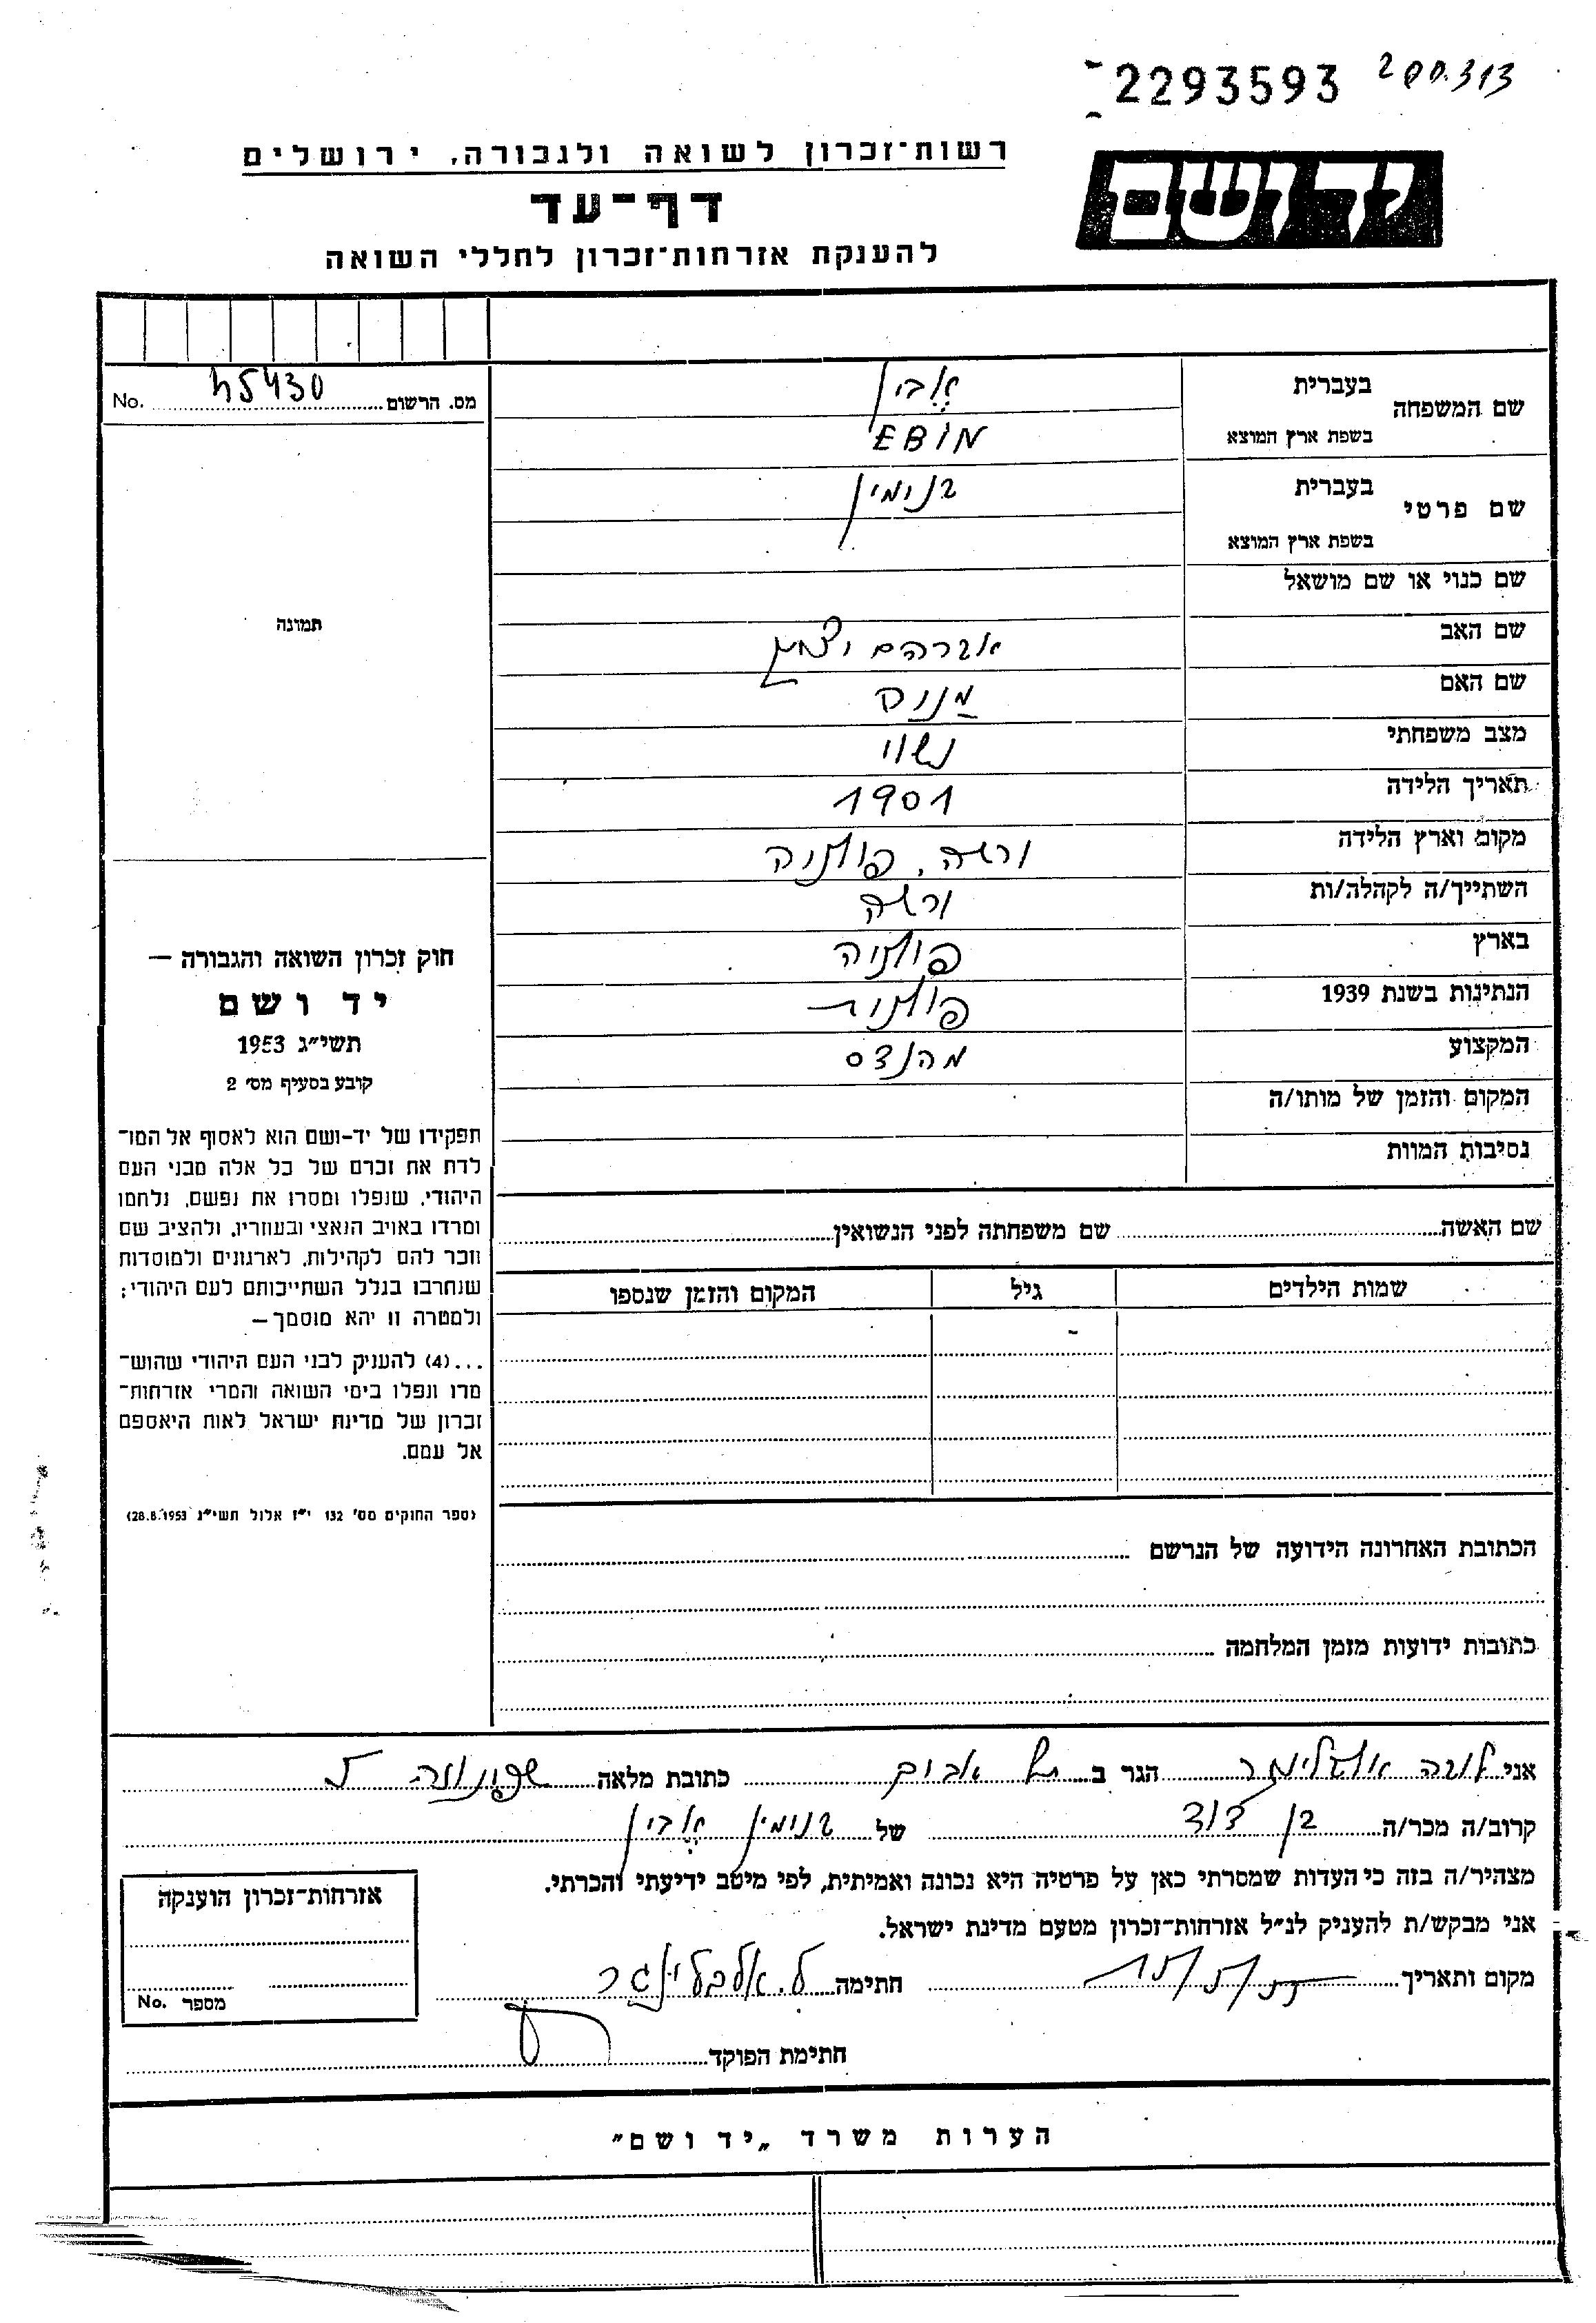 2293593
רשות־זכרון לשואה ולגבורה, ירושלים
יד ושם
דף־עד
להענקת אזרחות־זכרון לחללי השואה
מס. הרשום 45430 No.
שם המשפחה
בעברית אֶבין
בשפת ארץ המוצא EBIN
שם פרטי
בעברית בנומין
בשפת ארץ המוצא
שם כנוי או שם מושאל
תמונה
שם האב אברהם יצחק
שם האם
מצב משפחתי נשוי
תאריך הלידה 1901
מקום וארץ הלידה ורשה, פולניה
השתייך/ה לקהלה/ות ורשה
בארץ פולניה
הנתינות בשנת 1939 פולנית
המקצוע מהנדס
המקום והזמן של מותו/ה
נסיבות המוות
חוק זכרון השואה והגבורה –
יד ושם
תשי״ג 1953
קובע בסעיף מס׳ 2
תפקידו של יד-ושם הוא לאסוף אל המו־
לדת את זכרם של כל אלה מבני העם
היהודי, שנפלו ומסרו את נפשם, נלחמו
ומרדו באויב הנאצי ובעוזריו, ולהציב שם
וזכר להם לקהילות, לארגונים ולמוסדות
שנחרבו בגלל השתייכותם לעם היהודי;
ולמטרה זו יהא מוסמך –
...(4) להעניק לבני העם היהודי שהוש־
מדו ונפלו בימי השואה והמרי אזרחות־
זכרון של מדינת ישראל לאות היאספם
אל עמם.
(ספר החוקים מס׳ 132 י״ז אלול תשי״ג 28.8.1953)
שם האשה שם משפחתה לפני הנשואין
שמות הילדים גיל המקום והזמן שנספו
הכתובת האחרונה הידועה של הנרשם
כתובות ידועות מזמן המלחמה
אני הגר ב תל אביב כתובת מלאה
קרוב/ה מכר/ה בן דוד של בנומין אֶבין
מצהיר/ה בזה כי העדות שמסרתי כאן על פרטיה היא נכונה ואמיתית, לפי מיטב ידיעתי והכרתי.
אני מבקש/ת להעניק לנ״ל אזרחות־זכרון מטעם מדינת ישראל.
מקום ותאריך חתימה
חתימת הפוקד
אזרחות־זכרון הוענקה
מספר No.
הערות משרד „יד ושם״